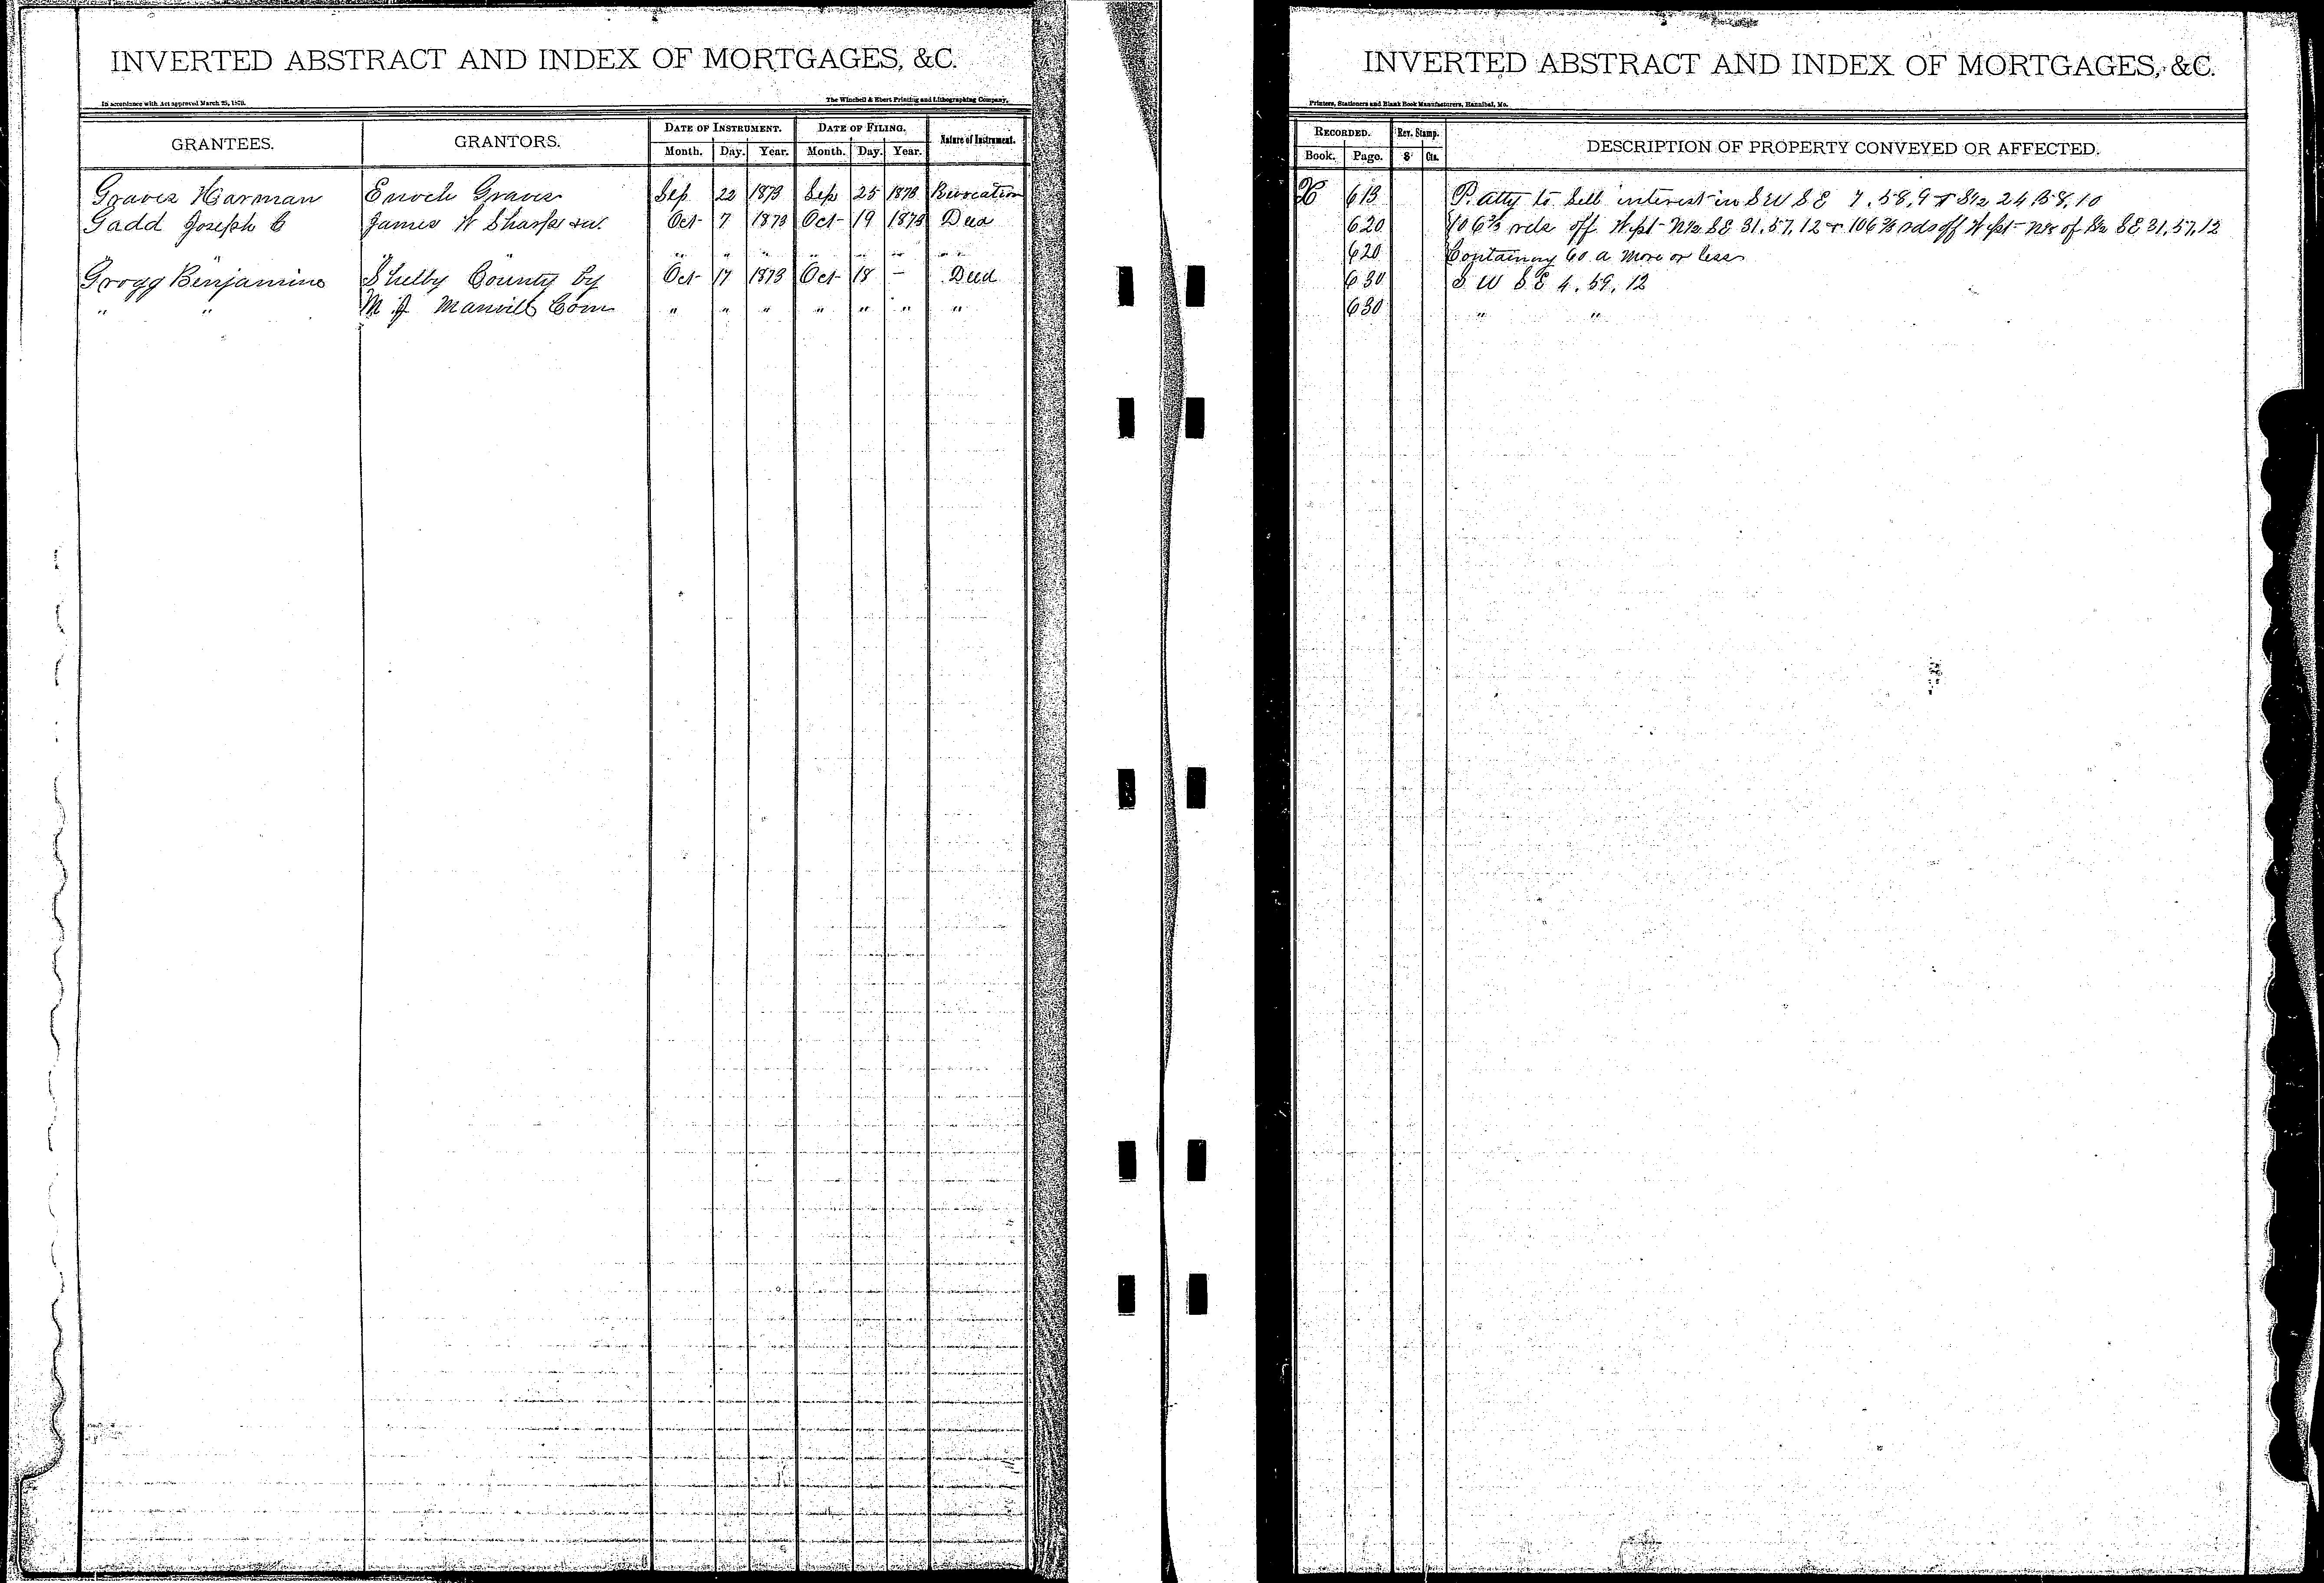 INVERTED ABSTRACT AND INDEX OF MORTGAGES, &C.
In accordance with Act approved March 25, 1873.
The Winchell & Ebert Printing and Lithographing Company,
GRANTEES. GRANTORS. DATE OF INSTRUMENT. DATE OF FILING. Nature of Instrument.
Month. Day. Year. Month. Day. Year.
Graves Harman Enoch Graves Sep 22 1873 Sep 25 1873 Revocation
Gadd Joseph C James W Sharp &w. Oct 7 1873 Oct 19 1873 Deed
" " " " " " " " "
Grogg Benjamine Shelby County by Oct 17 1873 Oct 18 – Deed
" " M J Manvill Com " " " " " " "
INVERTED ABSTRACT AND INDEX OF MORTGAGES, &C.
Printers, Stationers and Blank Book Manufacturers, Hannibal, Mo.
RECORDED. Rev. Stamp. DESCRIPTION OF PROPERTY CONVEYED OR AFFECTED.
Book. Page. $ Cts.
613 P. atty to sell interest in SW SE 7, 58, 9 & S½ 24, 58, 10
620 106⅔ rds off W pt N½ SE 31, 57, 12 & 106⅔ rds off W pt N½ of S½ SE 31, 57, 12
620 Containing 60 a more or less
630 S W S E 4, 59, 12
630 " "